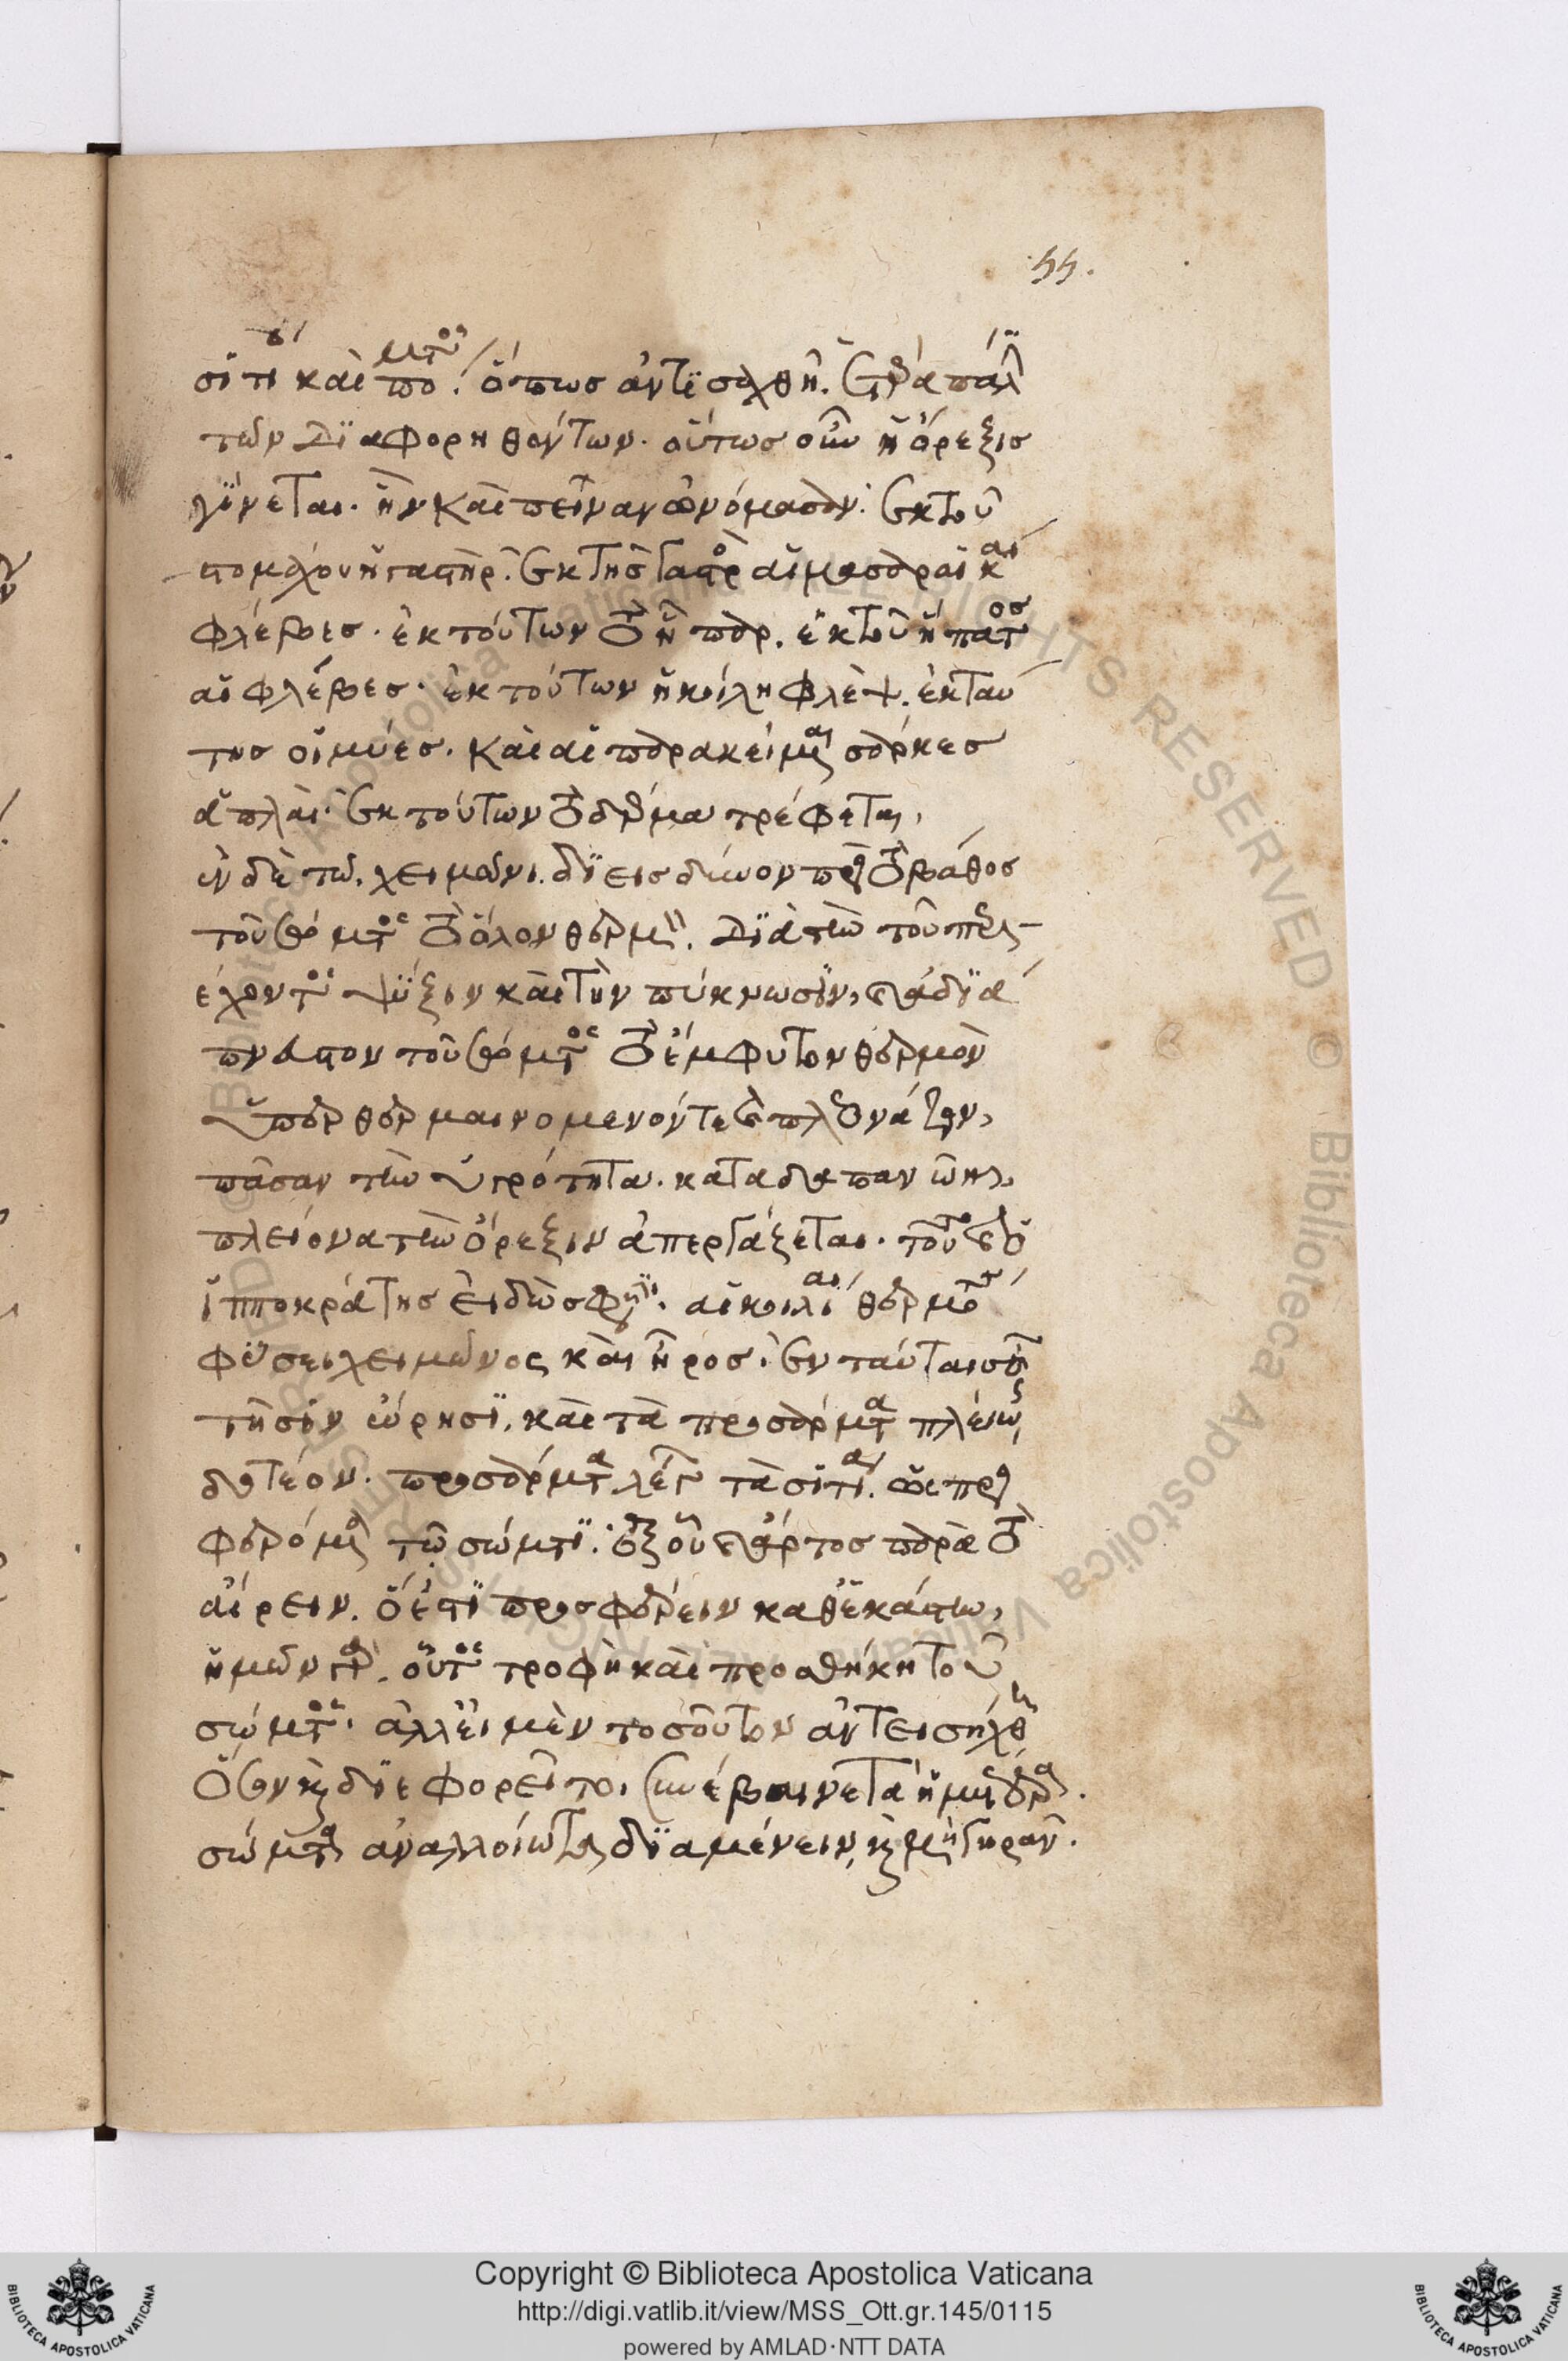 55.
σιτί καὶ πομτ΄. ὅπως ἀντεισαχθῆ. ἕτερα πάλιν
τῶν διαφορηθέντων. οὕτως οὖν ἡ ὄρεξις
γίνεται. ἣν καὶ πεῖναν ὠνόμασαν. ἐκ τοῦ
στομάχου ἡ γαστήρ. ἐκ τῆς γαστρὸς αἱ μεσαραϊκαὶ
φλέβες. ἐκ τούτων τὸ ἧπαρ. ἐκ τοῦ ἥπατος
αἱ φλέβες. ἐκ τούτων ἡ κοίλη φλέψ. ἐκ ταύ
της οἱ μύες. καὶ αἱ παρακείμεναι σάρκες
ἁπλαῖ. ἐκ τούτων τὸ δέρμα τρέφεται,
ἐν δὲ τῶ χειμῶνι. δϊεισδῦνον πρὸς τὸ βάθος
τοῦ σώματος τὸ ὅλον θερμὸν. διὰ τὴν τοῦ περι
έχοντος ψύξιν καὶ τὴν πύκνωσιν,
τοῦ σώματος τὸ ἔμφυτον θερμὸν
ὑπερθερμαινόμενόν τε καὶ πλεονάζον,
πᾶσαν τὴν ὑγρότητα. καταδαπανῶν,
πλείονα τὴν ὄρεξιν ἀπεργάζεται. τοῦτο
ἱπποκράτης εἰδὼς φησὶ. αἱ κοιλίαι θερμόταται
φύσει χειμῶνος καὶ ἦρος. ἐν ταύταις οὖν
τῆσιν ὥρησι. καὶ τὰ προσάρματα πλείω
δοτέον. προσάρματα λέγει τὰ σιτία. ὡς προσ
φερόμενα τῶ σώματι. ἐξ οὗ καὶ ἄρτος παρὰ τὸ
αἴρειν. ὅ ἐστι προσφέρειν καθ' ἑκάστην,
ἡμῶν γάρ. οὗτος τροφὴ καὶ προσθήκη τοῦ
σώματος. ἀλλ' εἰ μὲν τοσοῦτον ἀντεισήχθη
ὅσον καὶ διεφορεῖτο, συνέβαινε τὰ ἡμέτερα.
σώματα ἀναλλοίωτα διαμένειν, καὶ μὴ γηρᾶν.
Copyright © Biblioteca Apostolica Vaticana
http://digi.vatlib.it/view/MSS_Ott.gr.145/0115
powered by AMLAD·NTT DATA